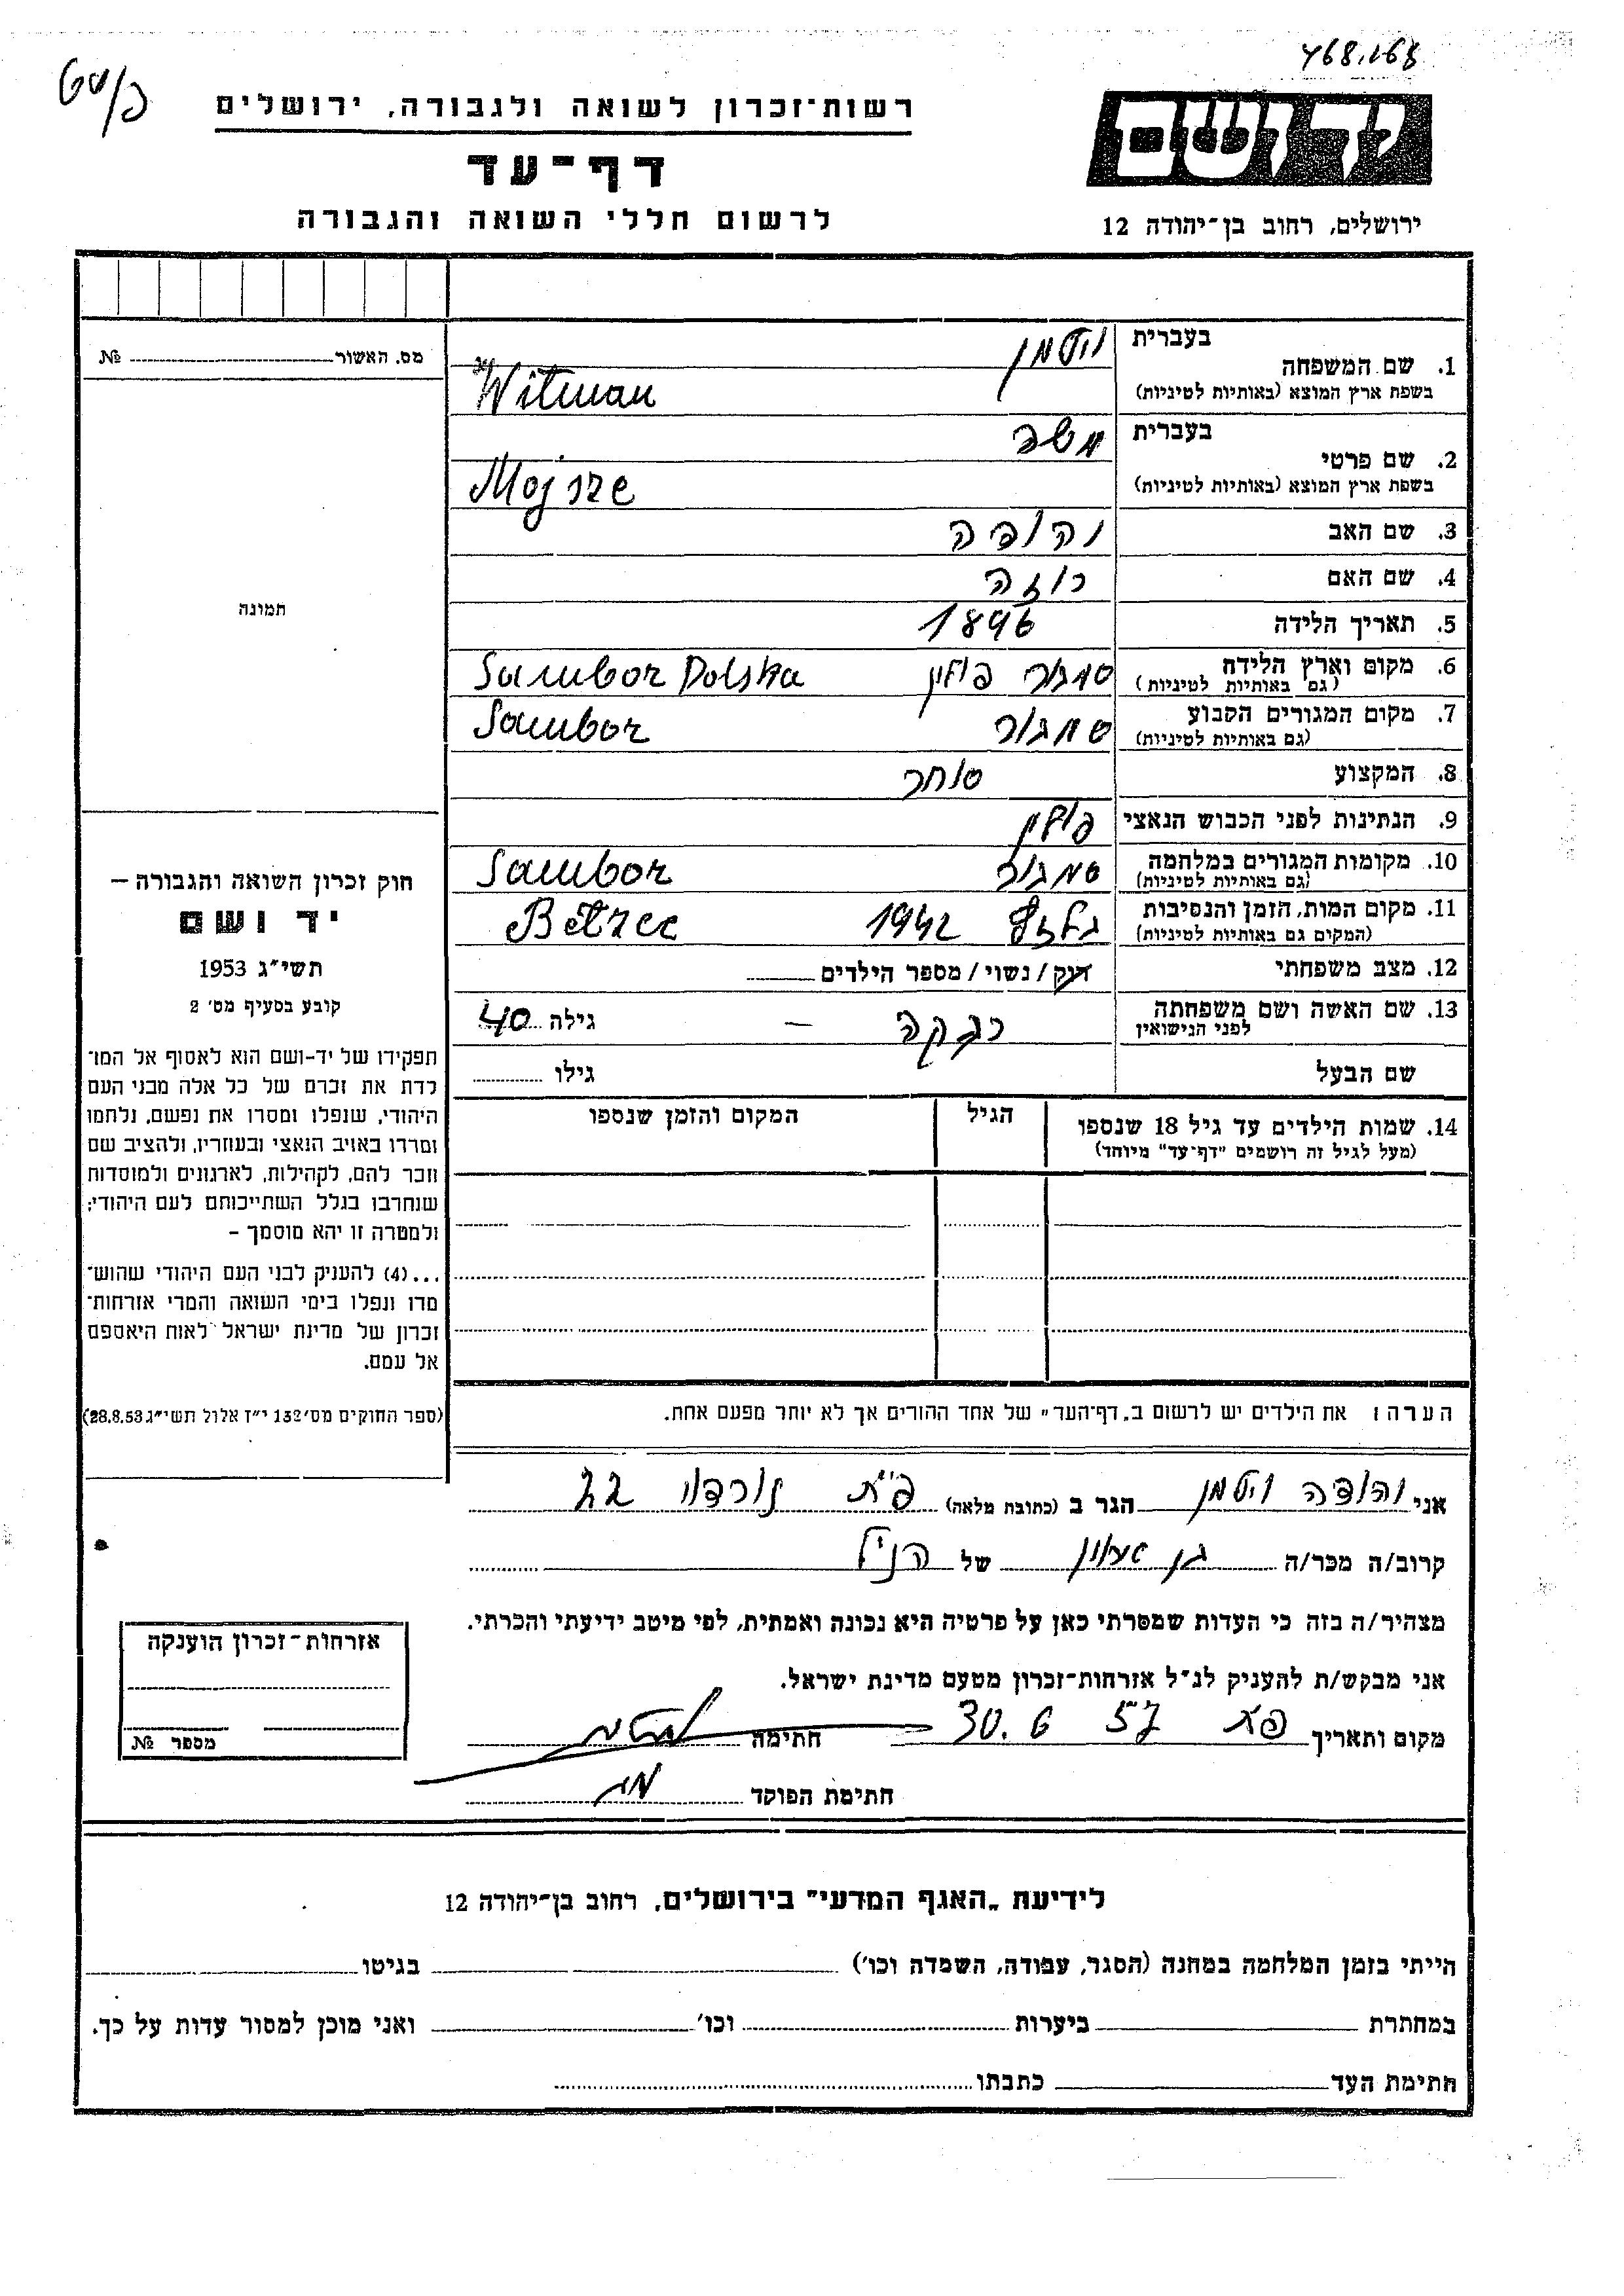 468/168
רשות־זכרון לשואה ולגבורה, ירושלים
יד ושם
דף־עד
לרשום חללי השואה והגבורה
ירושלים, רחוב בן־יהודה 12
מס. האשור № 
בעברית
1. שם המשפחה
בשפת ארץ המוצא (באותיות לטיניות)
ויטמן
Witman
בעברית
2. שם פרטי
בשפת ארץ המוצא (באותיות לטיניות)
משה
Mojsze
3. שם האב יהודה
4. שם האם רוזה
5. תאריך הלידה 1896
6. מקום וארץ הלידה
(גם באותיות לטיניות)
סמבור פולין Sambor Polska
7. מקום המגורים הקבוע
(גם באותיות לטיניות)
סמבור Sambor
8. המקצוע סוחר
9. הנתינות לפני הכבוש הנאצי פולין
10. מקומות המגורים במלחמה
(גם באותיות לטיניות)
סמבור Sambor
11. מקום המות, הזמן והנסיבות
(המקום גם באותיות לטיניות)
בלזץ 1942 Bełzec
12. מצב משפחתי רוק/נשוי/מספר הילדים
13. שם האשה ושם משפחתה
לפני הנישואין
רבקה – גילה 40
שם הבעל גילו
14. שמות הילדים עד גיל 18 שנספו
(מעל לגיל זה רושמים "דף־עד" מיוחד)
הגיל
המקום והזמן שנספו
תמונה
חוק זכרון השואה והגבורה –
יד ושם
תשי"ג 1953
קובע בסעיף מס' 2
תפקידו של יד-ושם הוא לאסוף אל המו־
לדת את זכרם של כל אלה מבני העם
היהודי, שנפלו ומסרו את נפשם, נלחמו
ומרדו באויב הנאצי ובעוזריו, ולהציב שם
וזכר להם, לקהילות, לארגונים ולמוסדות
שנחרבו בגלל השתייכותם לעם היהודי;
ולמטרה זו יהא מוסמך –
...(4) להעניק לבני העם היהודי שהוש־
מדו ונפלו בימי השואה והמרי אזרחות־
זכרון של מדינת ישראל לאות היאספם
אל עמם.
(ספר החוקים מס' 132 י"ז אלול תשי"ג 28.8.53)
הערה: את הילדים יש לרשום ב„דף־העד" של אחד ההורים אך לא יותר מפעם אחת.
אני יהודה ויטמן הגר ב (כתובת מלאה) פ"ת נורדוי 22
קרוב/ה מכר/ה בן של הנ"ל
מצהיר/ה בזה כי העדות שמסרתי כאן על פרטיה היא נכונה ואמתית, לפי מיטב ידיעתי והכרתי.
אני מבקש/ת להעניק לנ"ל אזרחות-זכרון מטעם מדינת ישראל.
מקום ותאריך פ"ת 30. 6 57 חתימה
חתימת הפוקד
אזרחות-זכרון הוענקה
מספר №
לידיעת „האגף המדעי" בירושלים, רחוב בן־יהודה 12
הייתי בזמן המלחמה במחנה (הסגר, עבודה, השמדה וכו') בגיטו
במחתרת ביערות וכו' ואני מוכן למסור עדות על כך.
חתימת העד כתבתו